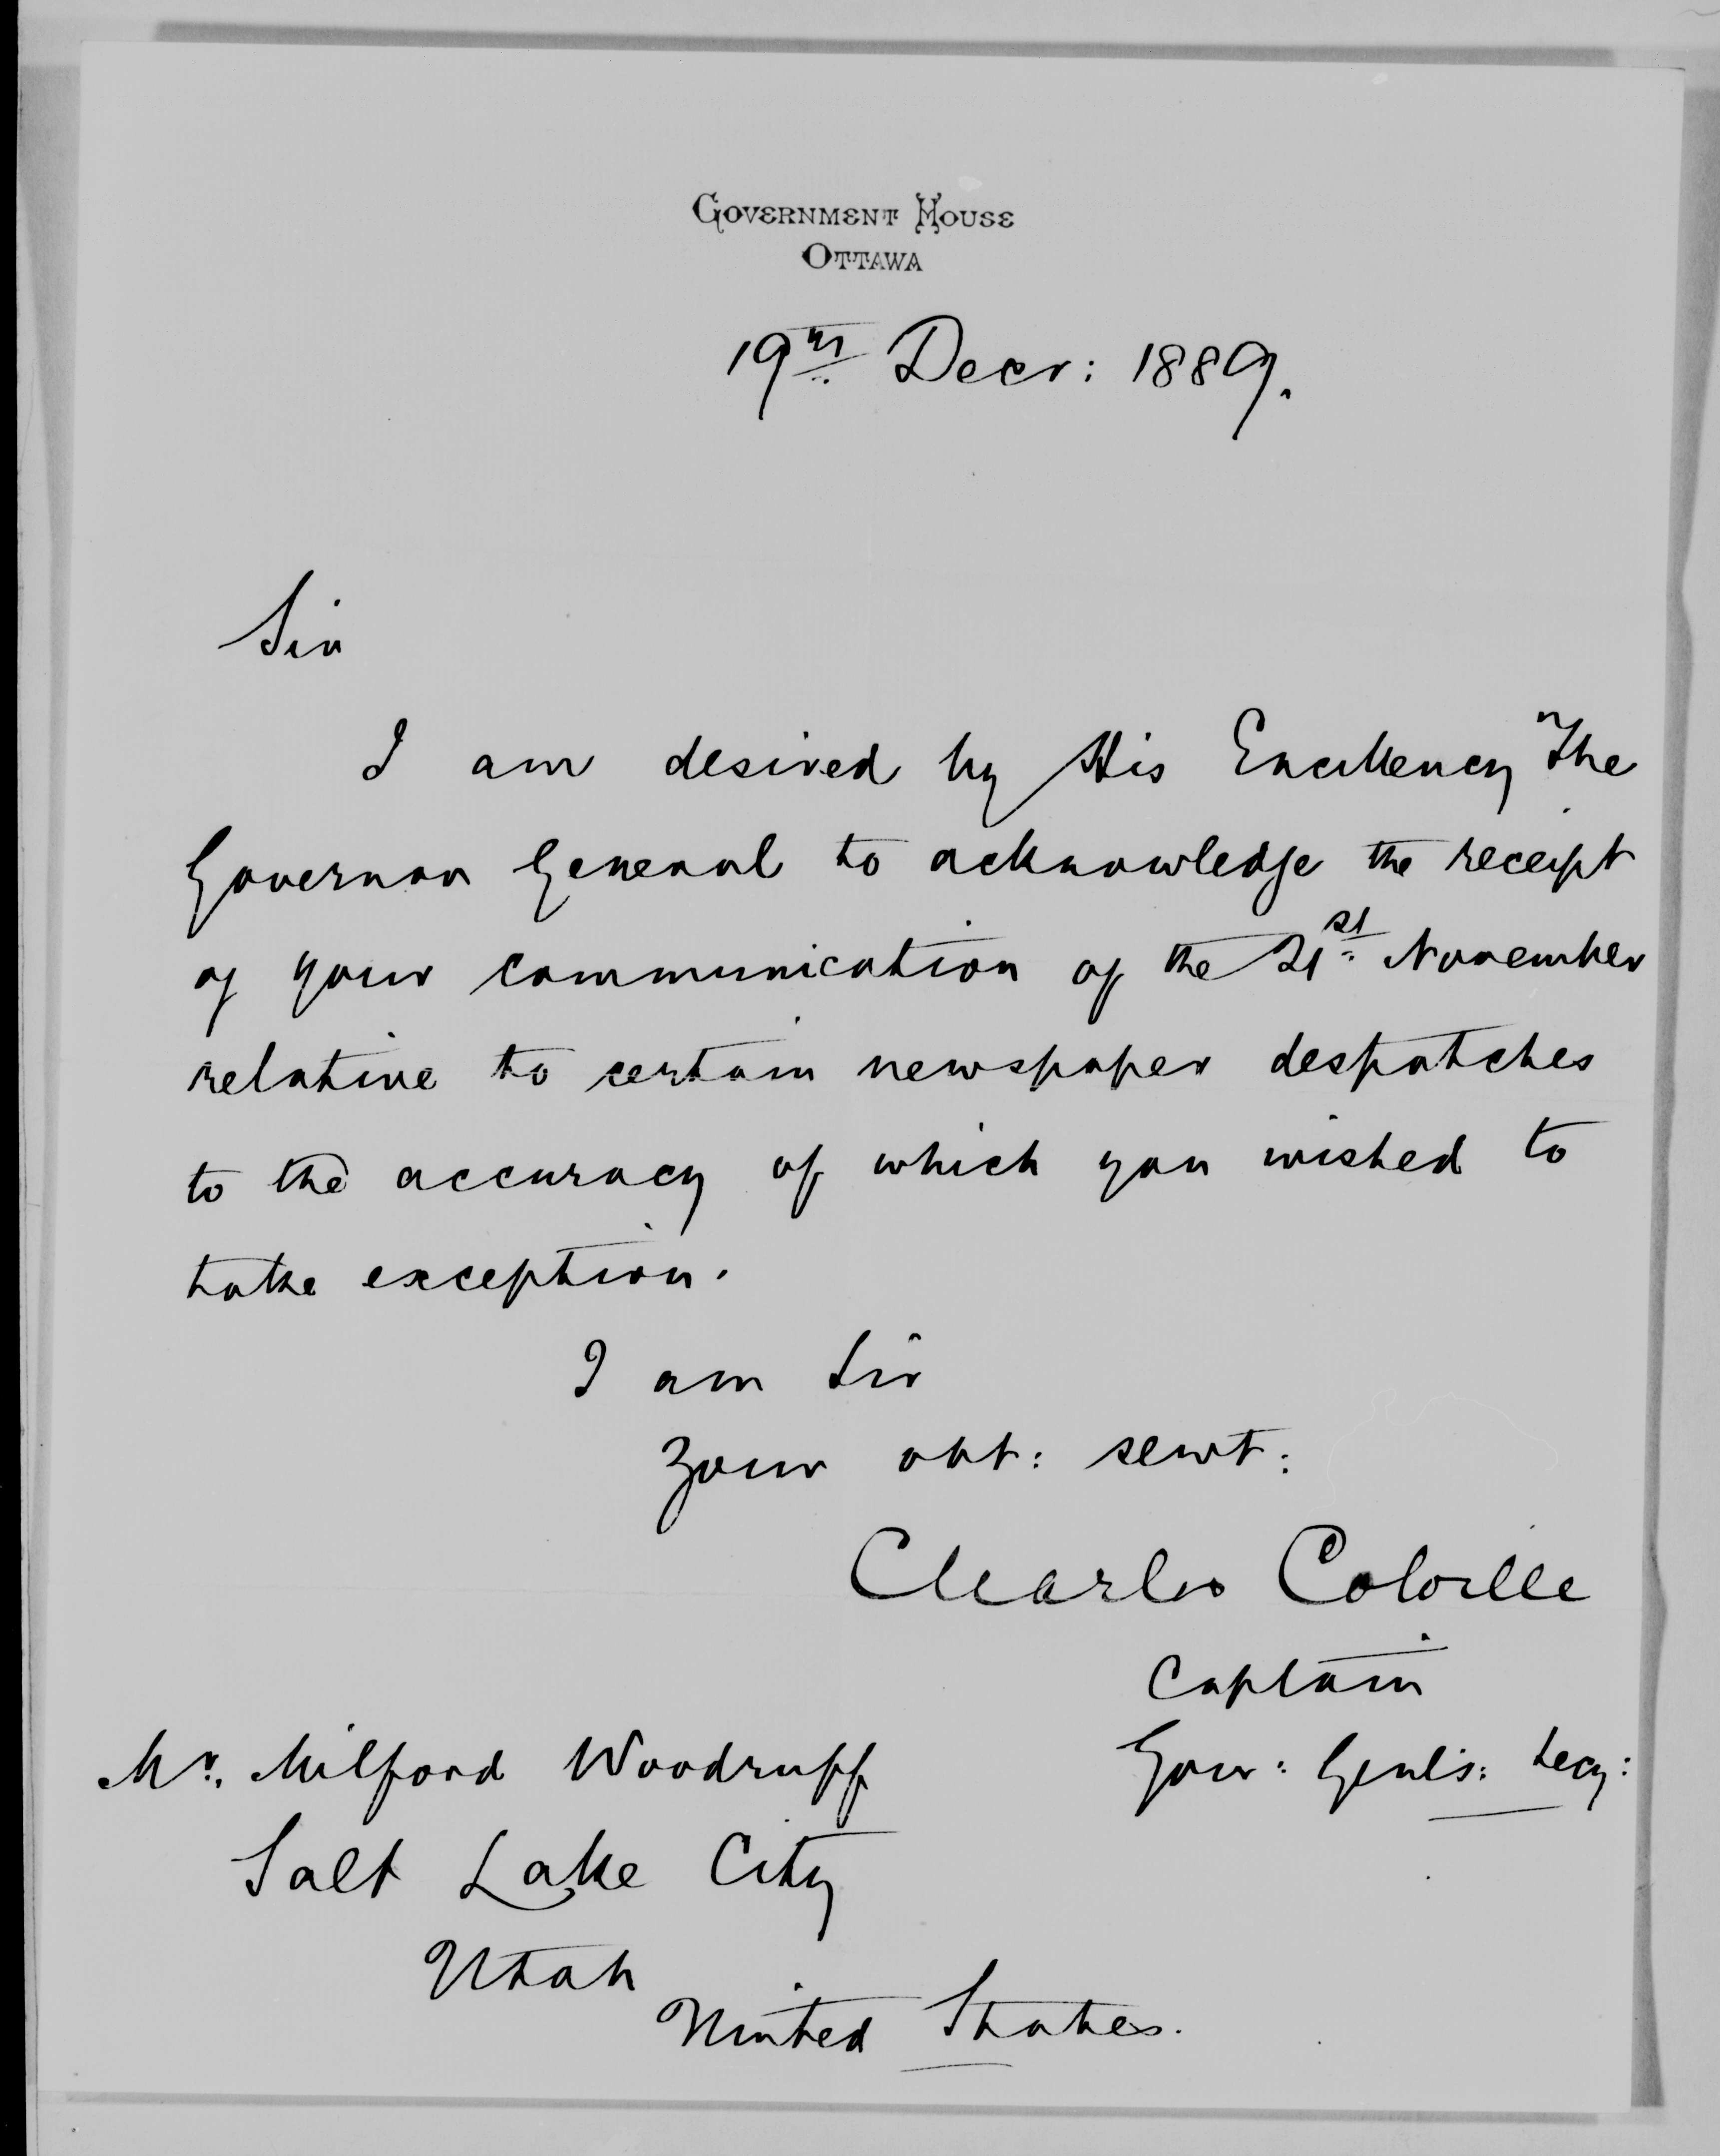 Government House
Ottawa
19th Decr: 1889.
Sir
I am desired by His Excellency The
Governor General to acknowledge the receipt
of your communication of the 21st November
relative to certain newspaper despatches
to the accuracy of which you wished to
take exception.
I am Sir
Your obt: servt:
Charles Colville
Captain
Gov: Genl's: Secy:
Mr. Milford Woodruff
Salt Lake City
Utah
United States.